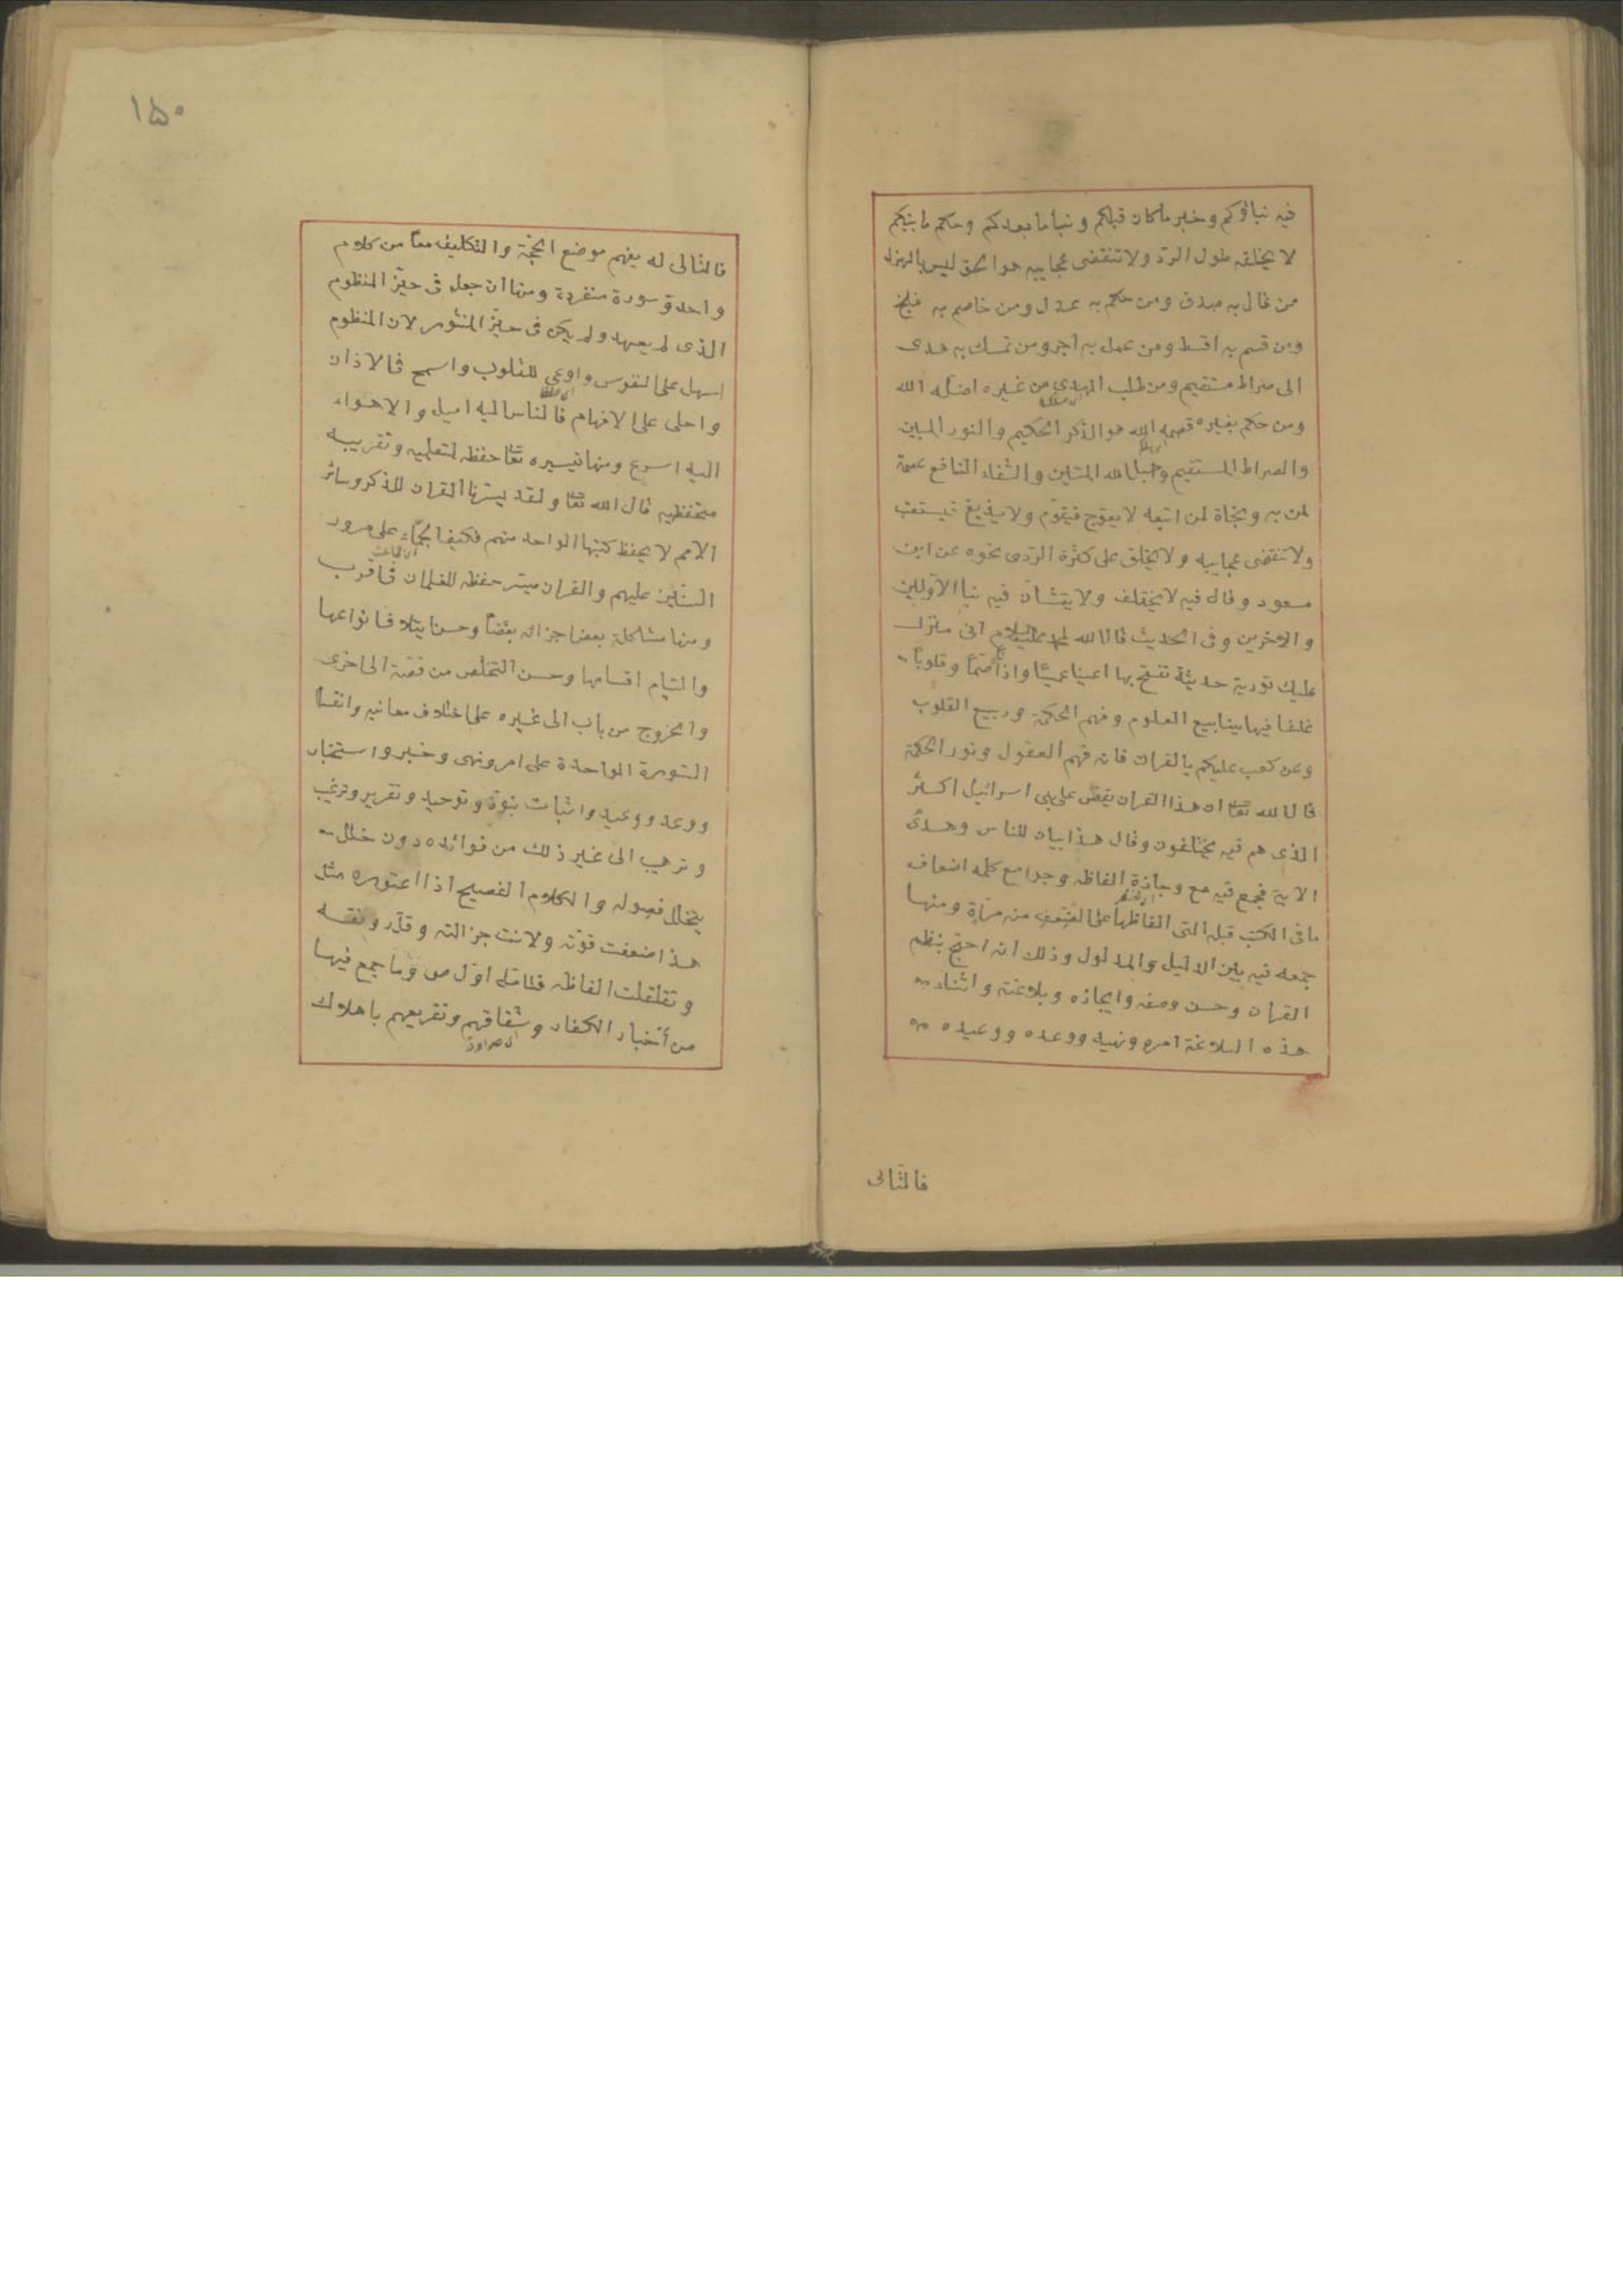 فيه نباؤكم وخبر ما كان قبلكم ونبأ ما بعدكم وحكم ما بينكم
لا يخلقه طول الردّ ولا تنقضى عجايبه هو الحق ليس بالهزل
من قال به صدق ومن حكم به عدل ومن خاصم به فلج
ومن قسم به اقسط ومن عمل به اجر ومن تمسك به هدى
الى صراط مستقيم ومن طلب الهدى من غيره اضله الله
ومن حكم بغيره قصمه الله هو الذكر الحكيم والنور المبين
والصراط المستقيم وحبل الله المتين والشفاء النافع عصمة
لمن به ونجاة لمن اتبعه لا يعوج فيقوّم ولا يزيغ فيستعتب
ولا تنقضى عجايبه ولا يخلق على كثرة الردّ ى نحوه عن ابن
مسعود وقال فيه لا يختلف ولا يتشان فيه نبا الاوّلين
والاخرين وفى الحديث قال الله لمحمد عليه السلام انى منزل
عليك تورية حديثة تفتح بها اعينا عميّا واذانا صمّا وقلوبا
غلفا فيها ينابيع العلوم وفهم الحكمة وربيع القلوب
وعن كعب عليكم بالقران فانه فهم العقول ونور الحكمة
قال الله تعا ان هذا القران يقصّ على بنى اسرائيل اكثر
الذى هم فيه يختلفون وقال هذا بيان للناس وهدىً
الاية فجمع فيه مع وجازة الفاظه وجوامع كلمه اضعاف
ما فى الكتب قبله التى الفاظها على الضعف منه مرّاة ومنها
جمعه فيه بين الدليل والمدلول وذلك انه احتج بنظم
القران وحسن وصفه وايجازه وبلاغته واثناء
هذه البلاغة امره ونهيه ووعده ووعيده
فالتالى
١۵۰
فالتالى له يفهم موضع الحجّة والتكليف معاً من كلام
واحد وسورة منفردة ومنها ان جعله فى حيّز المنظوم
الذى لم يعهد ولم يكن فى حيّز المنثور لان المنظوم
اسهل على النفوس واوعى للقلوب واسمح فى الاذان
واحلى على الافهام فالناس اليه اميل والاهواء
اليه اسرع ومنها تيسيره تعا حفظه لمتعلميه وتقريبه
متحفظيه قال الله تعا ولقد يسّرنا القران للذكر وسائر
الامم لا يحفظ كتبها الواحد منهم فكيف الجمّاء على مرور
السنين عليهم والقران ميسّر حفظه للغلمان فى اقرب
ومنها مشاكلة بعض اجزائه بعضاً وحسن ايتلاف انواعها
والتيام اقسامها وحسن التخلّص من قصّة الى اخرى
والخروج من باب الى غيره على اختلاف معانيه وانقسا
السّورة الواحدة على امر ونهى وخبر واستخبار
ووعد ووعيد واثبات نبوّة وتوحيد وتقرير وترغيب
وترهيب الى غير ذلك من فوائده دون خلل
يتخلل فصوله والكلام الفصيح اذا اعتوره مثل
هذا ضعفت قوّته ولانت جزالته وقلّ رونقه
وتقلقلت الفاظه فتامّل اوّل ص وما جمع فيها
من أخبار الكفار وشقاقهم وتقريعهم باهلاك